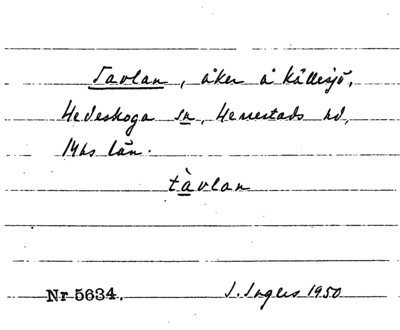 Tavlan, åker å Källesjö,
Hedeskoga sn, Herrestads hd,
Mhs län.
tàvlan
Nr 5634. I. Ingers 1950